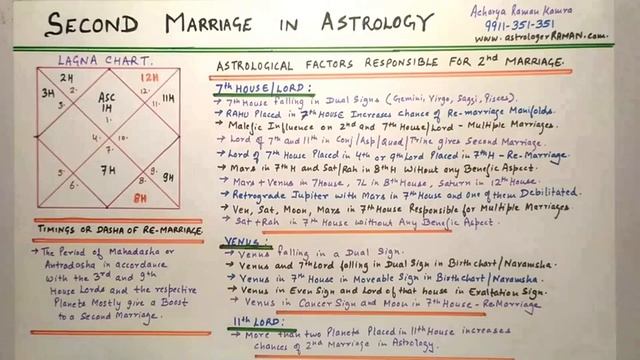 SECOND MARRIAGE IN ASTROLOGY
Acharya Raman Kamra
9911-351-351
www.astrologerRAMAN.com
LAGNA CHART.
2H
12H
3H
2.
12.
ASC
11H
3.
1H
11.
1.
4.
10.
7.
5.
7H
9.
9H
6.
8.
8H
TIMINGS OR DASHA OF RE-MARRIAGE.
→ The Period of Mahadasha or
Antradasha in accordance
with the 3rd and 9th
House Lords and the respective
Planets Mostly give a Boost
to a Second Marriage.
ASTROLOGICAL FACTORS RESPONSIBLE FOR 2nd MARRIAGE.
7th HOUSE/LORD:
→ 7th House falling in Dual Signs (Gemini, Virgo, Saggi, Pisces).
→ RAHU Placed in 7th HOUSE Increases chance of Re-marriage Manifolds.
→ Malefic Influence on 2nd and 7th House/Lord - Multiple Marriages.
→ Lord of 7th and 11th in Conj/Asp/Quad/Trine gives Second Marriage.
→ Lord of 7th House Placed in 4th or 9th Lord Placed in 7th H - Re-Marriage.
→ Mars in 7th H and Sat/Rah in 8th H Without any Benefic Aspect.
→ Mars + Venus in 7House, 7L in 8th House, Saturn in 12th House.
→ Retrograde Jupiter with Mars in 7th House and one of them Debilitated.
→ Ven, Sat, Moon, Mars in 7th House Responsible for Multiple Marriages
→ Sat + Rah in 7th House Without Any Benefic Aspect.
VENUS:
→ Venus falling in a Dual Sign.
→ Venus and 7th Lord falling in Dual Sign in Birthchart/Navamsha.
→ Venus in 7th House in Moveable Sign in Birthchart/Navamsha.
→ Venus in Even Sign and Lord of that house in Exaltation Sign.
→ Venus in Cancer Sign and Moon in 7th House - ReMarriage
11th LORD:
→ More than two Planets Placed in 11th House increases
chances of 2nd Marriage in Astrology.